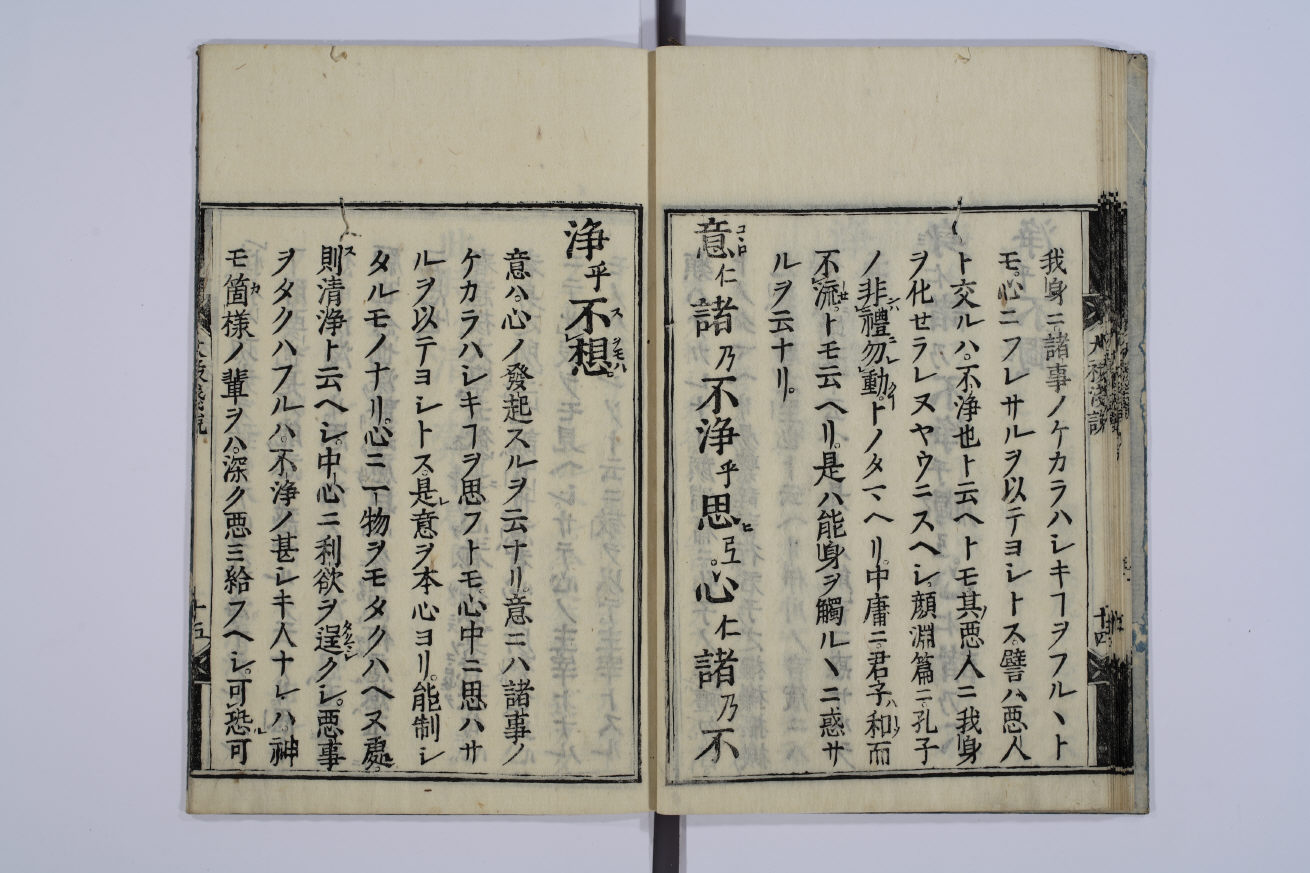 我身ニ諸事ノケカラハシキヿヲフルヽト
モ。心ニフレサルヲ以テヨシトス。譬ハ悪人
ト交ルハ。不浄也ト云ヘトモ其悪人ニ我身
ヲ化セラレヌヤウニスヘシ。顔淵篇ニ孔子
ノ非禮勿動。トノタマヘリ。中庸ニ君子和而
不流。トモ云ヘリ。是ハ能身ヲ觸ルヽニ惑サ
ルヲ云ナリ。
意仁諸乃不浄乎思比弖。心仁諸乃不
十四
浄乎不想
意ハ。心ノ發起スルヲ云ナリ。意ニハ諸事ノ
ケカラハシキヿヲ思フトモ。心中ニ思ハサ
ルヲ以テヨシトス。是意ヲ本心ヨリ。能制シ
タルモノナリ。心ニ一物ヲモタクハヘヌ處。
則清浄ト云ヘシ。中心ニ利欲ヲ逞クシ。悪事
ヲタクハフルハ。不浄ノ甚シキ人ナレハ。神
モ箇様ノ輩ヲハ。深ク悪ミ給フヘシ。可恐可
十五